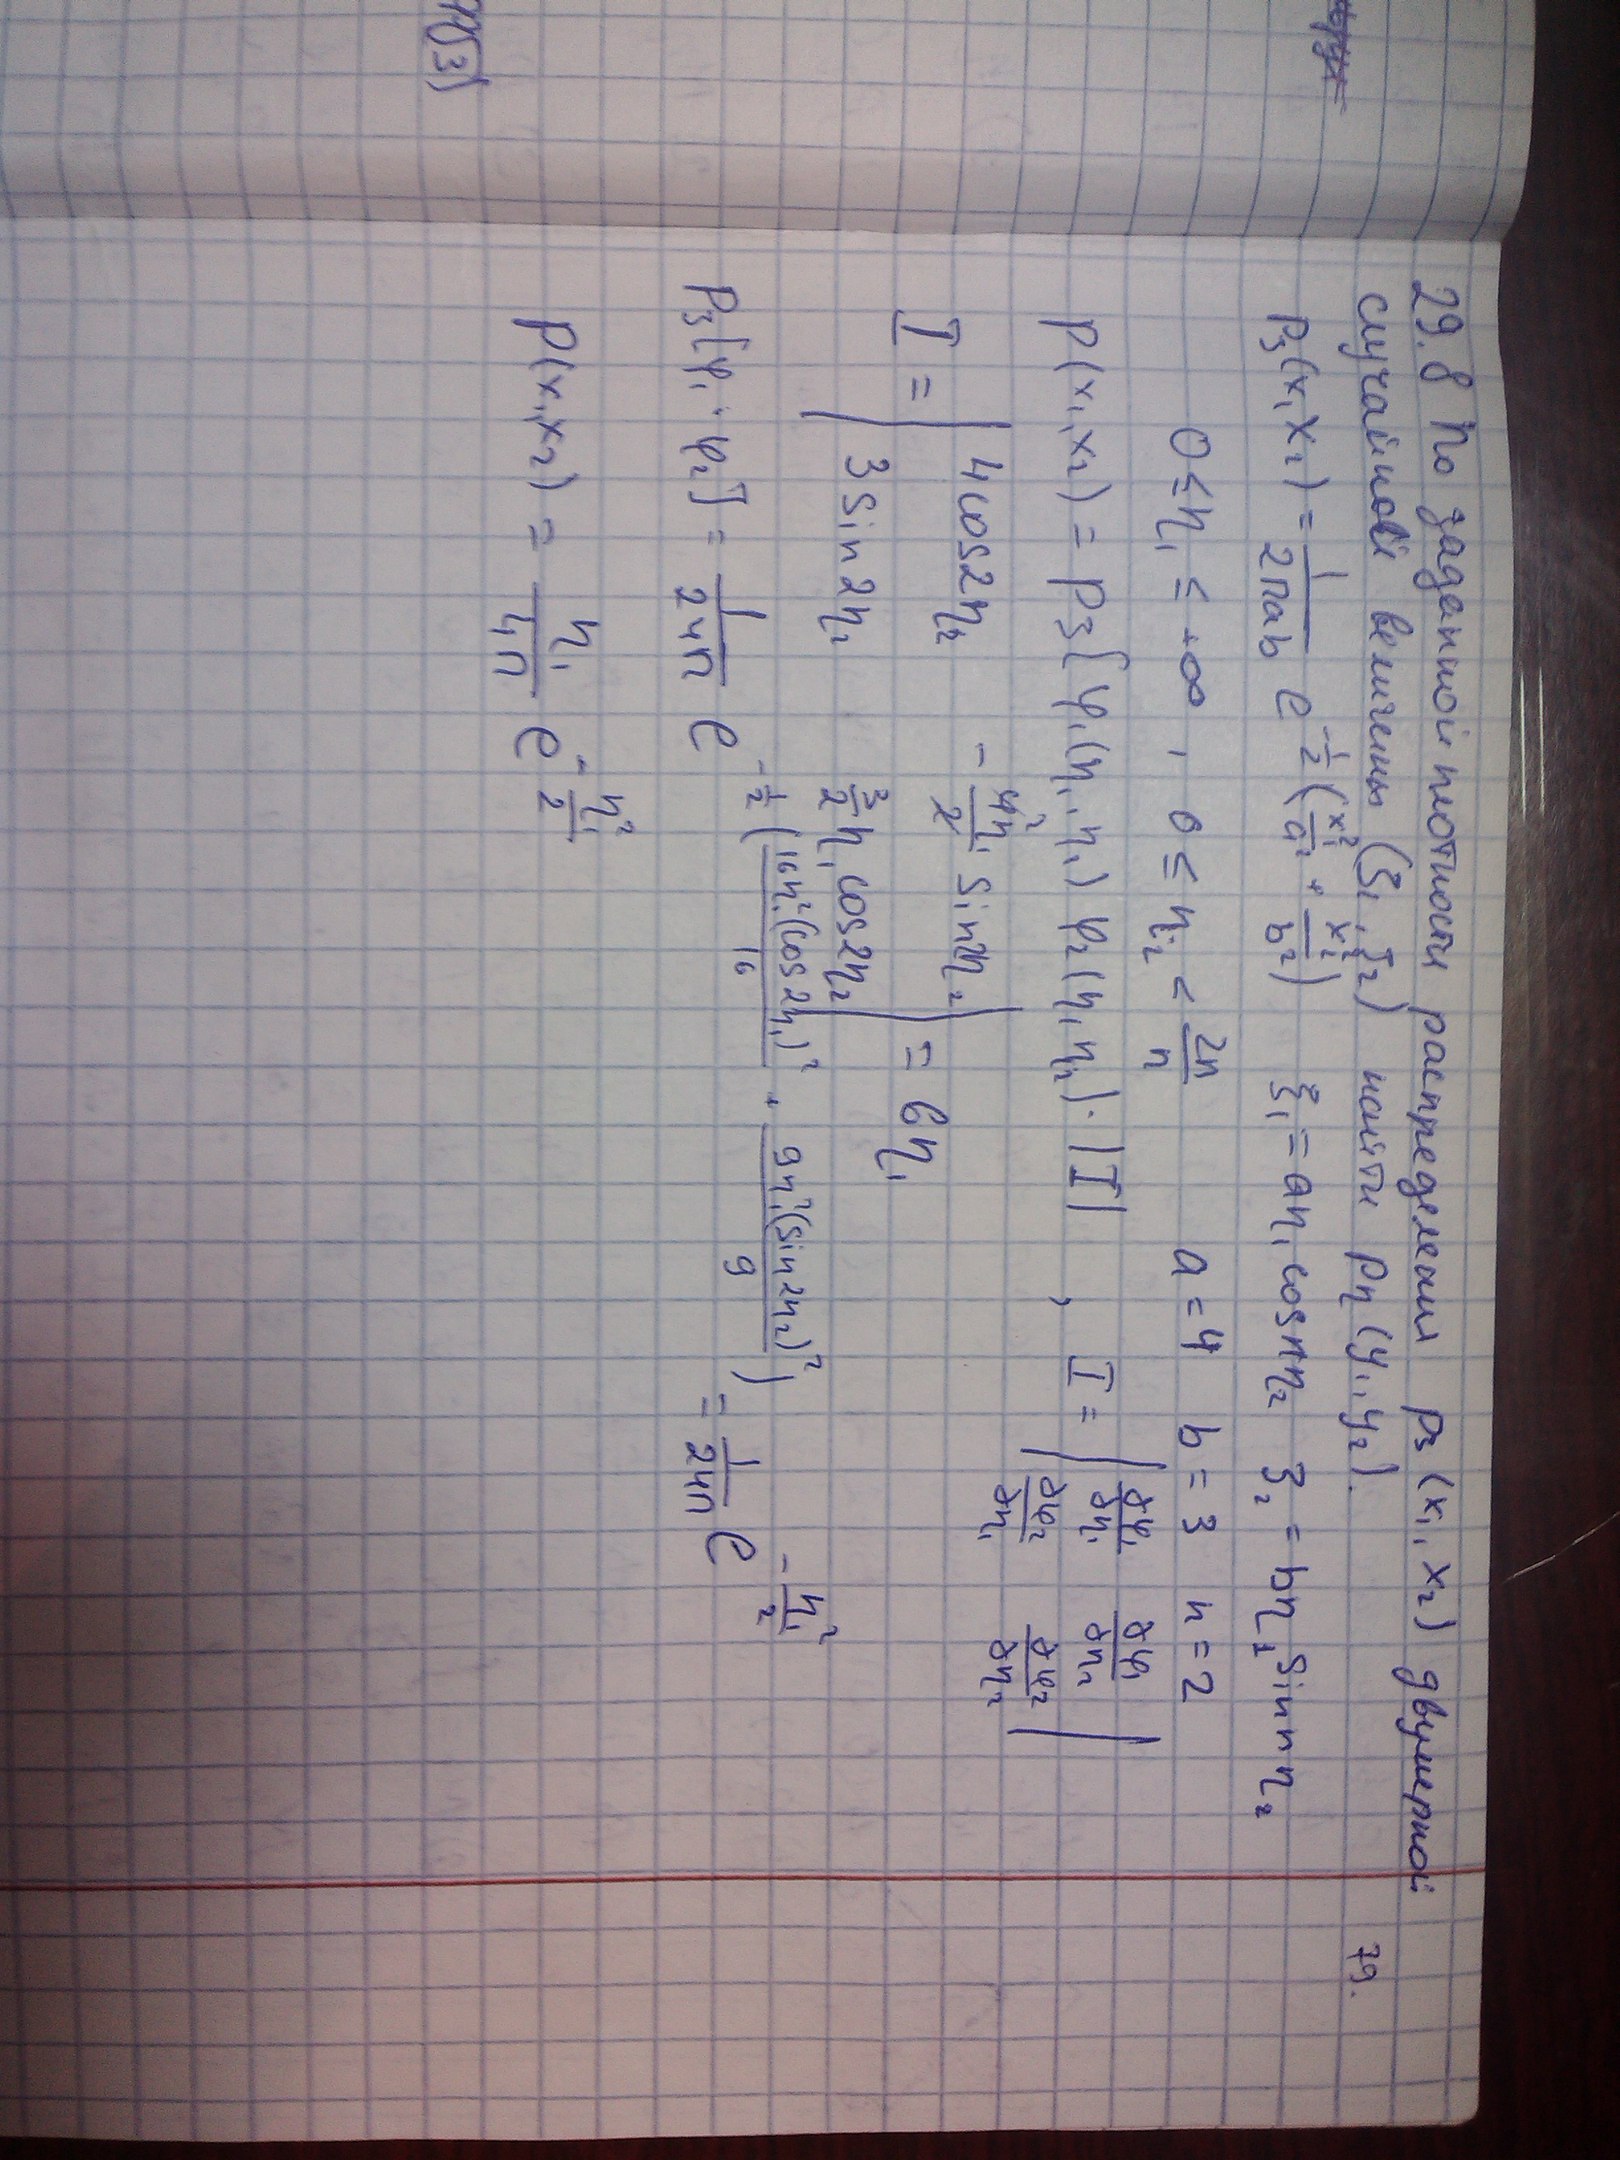 29.8 По заданной плотности распределения p₃(x₁, x₂) двумерной
случайной величины (ξ₁, ξ₂) найти pη(y₁, y₂).
79.
p₃(x₁x₂) = 1/(2πab) e^(-1/2 (x₁²/a² + x₂²/b²)) ξ₁ = aη₁ cos nη₂ ξ₂ = bη₁ sin nη₂
0 ≤ η₁ ≤ +∞, 0 ≤ η₂ < 2π/n a = 4 b = 3 n = 2
p(x₁,x₂) = p₃[φ₁(η₁,η₁) φ₂(η₁η₂)·|I|, I = |∂φ₁/∂η₁ ∂φ₁/∂η₂; ∂φ₂/∂η₁ ∂φ₂/∂η₂|
I = |4cos2η₂ -4η₁/2 sin2η₂; 3sin2η₂ 3/2 η₁cos2η₂| = 6η₁
p₃[φ₁·φ₂] = 1/(24π) e^(-1/2 (16η₁²(cos2η₁)²/16 + 9η₁²(sin2η₂)²/9)) = 1/(24π) e^(-η₁²/2)
p(x₁x₂) = η₁/(4π) e^(-η₁²/2)